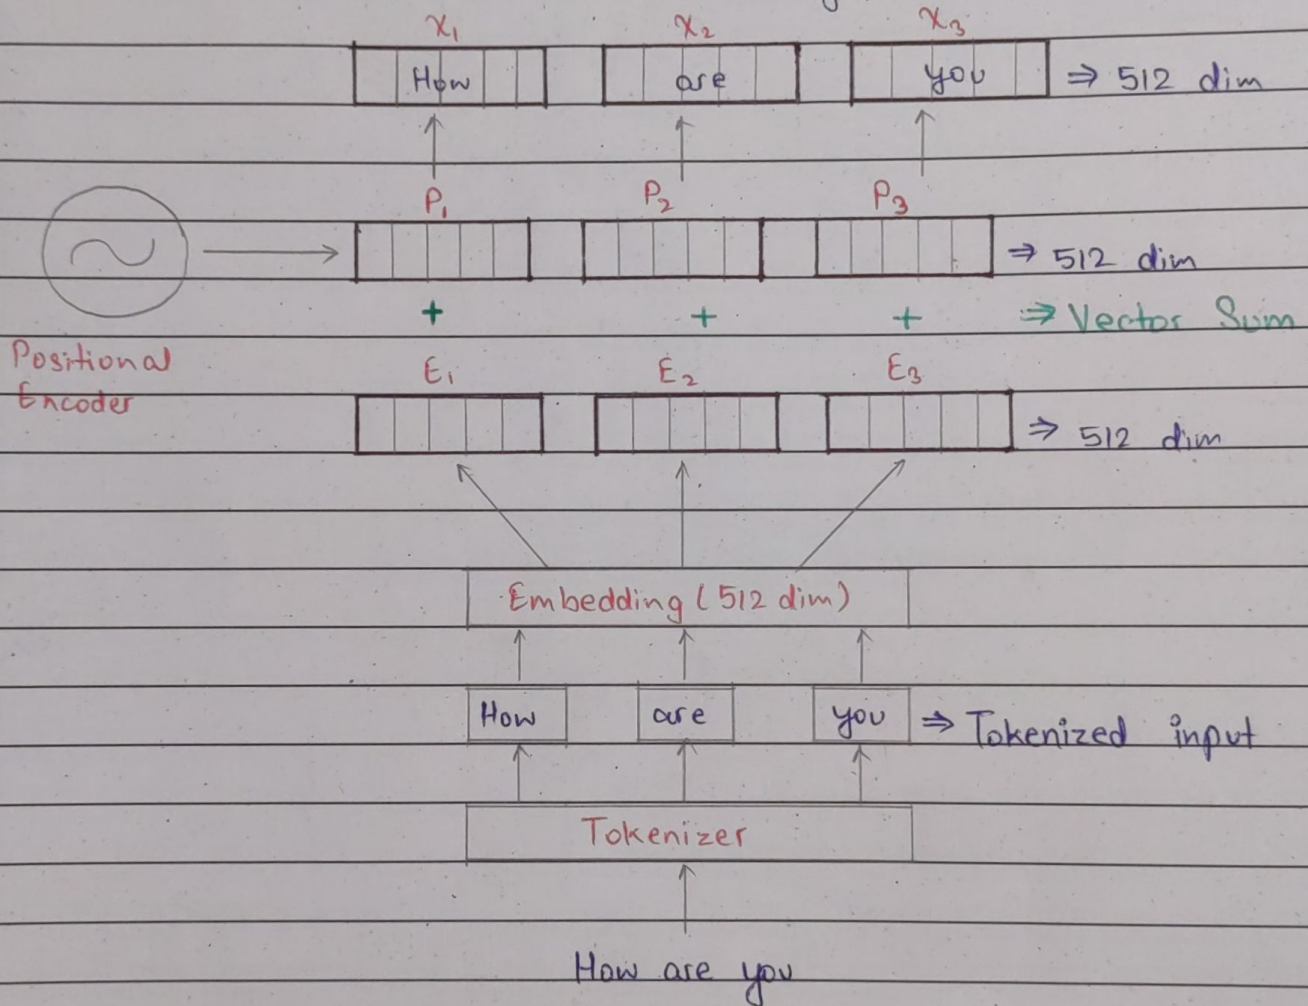 X₁ X₂ X₃
How are you ⇒ 512 dim
P₁ P₂ P₃
⇒ 512 dim
+ + + ⇒ Vector Sum
Positional
Encoder
E₁ E₂ E₃
⇒ 512 dim
Embedding (512 dim)
How are you ⇒ Tokenized input
Tokenizer
How are you